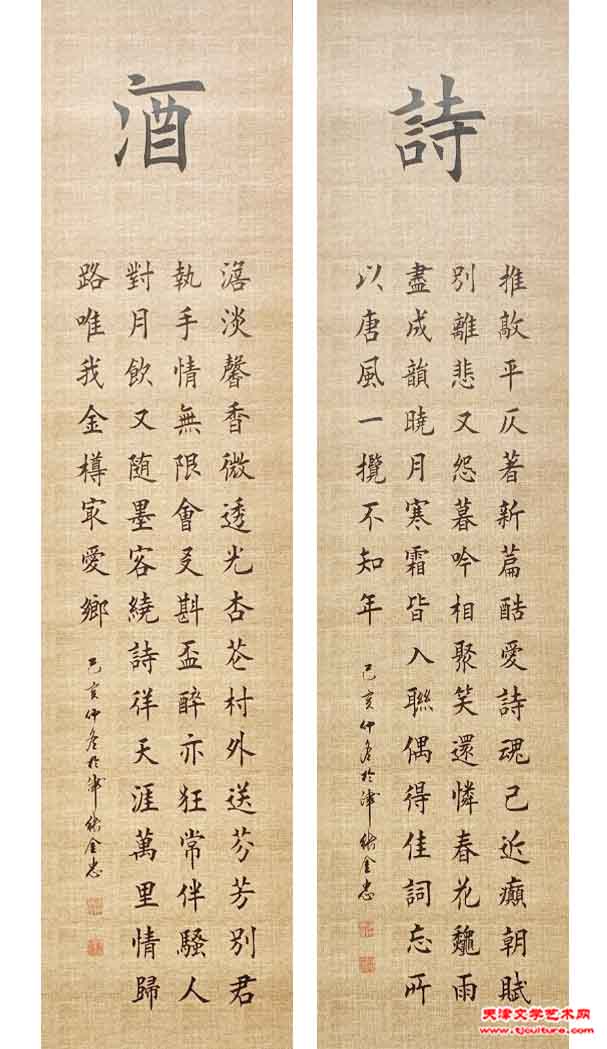 詩
推敲平仄著新篇酷愛詩魂已近癲朝賦
別離悲又怨暮吟相聚笑還憐春花龝雨
盡成韻曉月寒霜皆入聯偶得佳詞忘所
以唐風一攬不知年
己亥仲冬於津金忠
酒
淡馨香微透光杏花村外送芬芳別君
執手情無限會友斟盃醉亦狂常伴騷人
對月飲又随墨客繞詩徉天涯萬里情歸
路唯我金樽冣愛鄉
己亥仲冬於津金忠
天津文学艺术网
www.tjculture.com